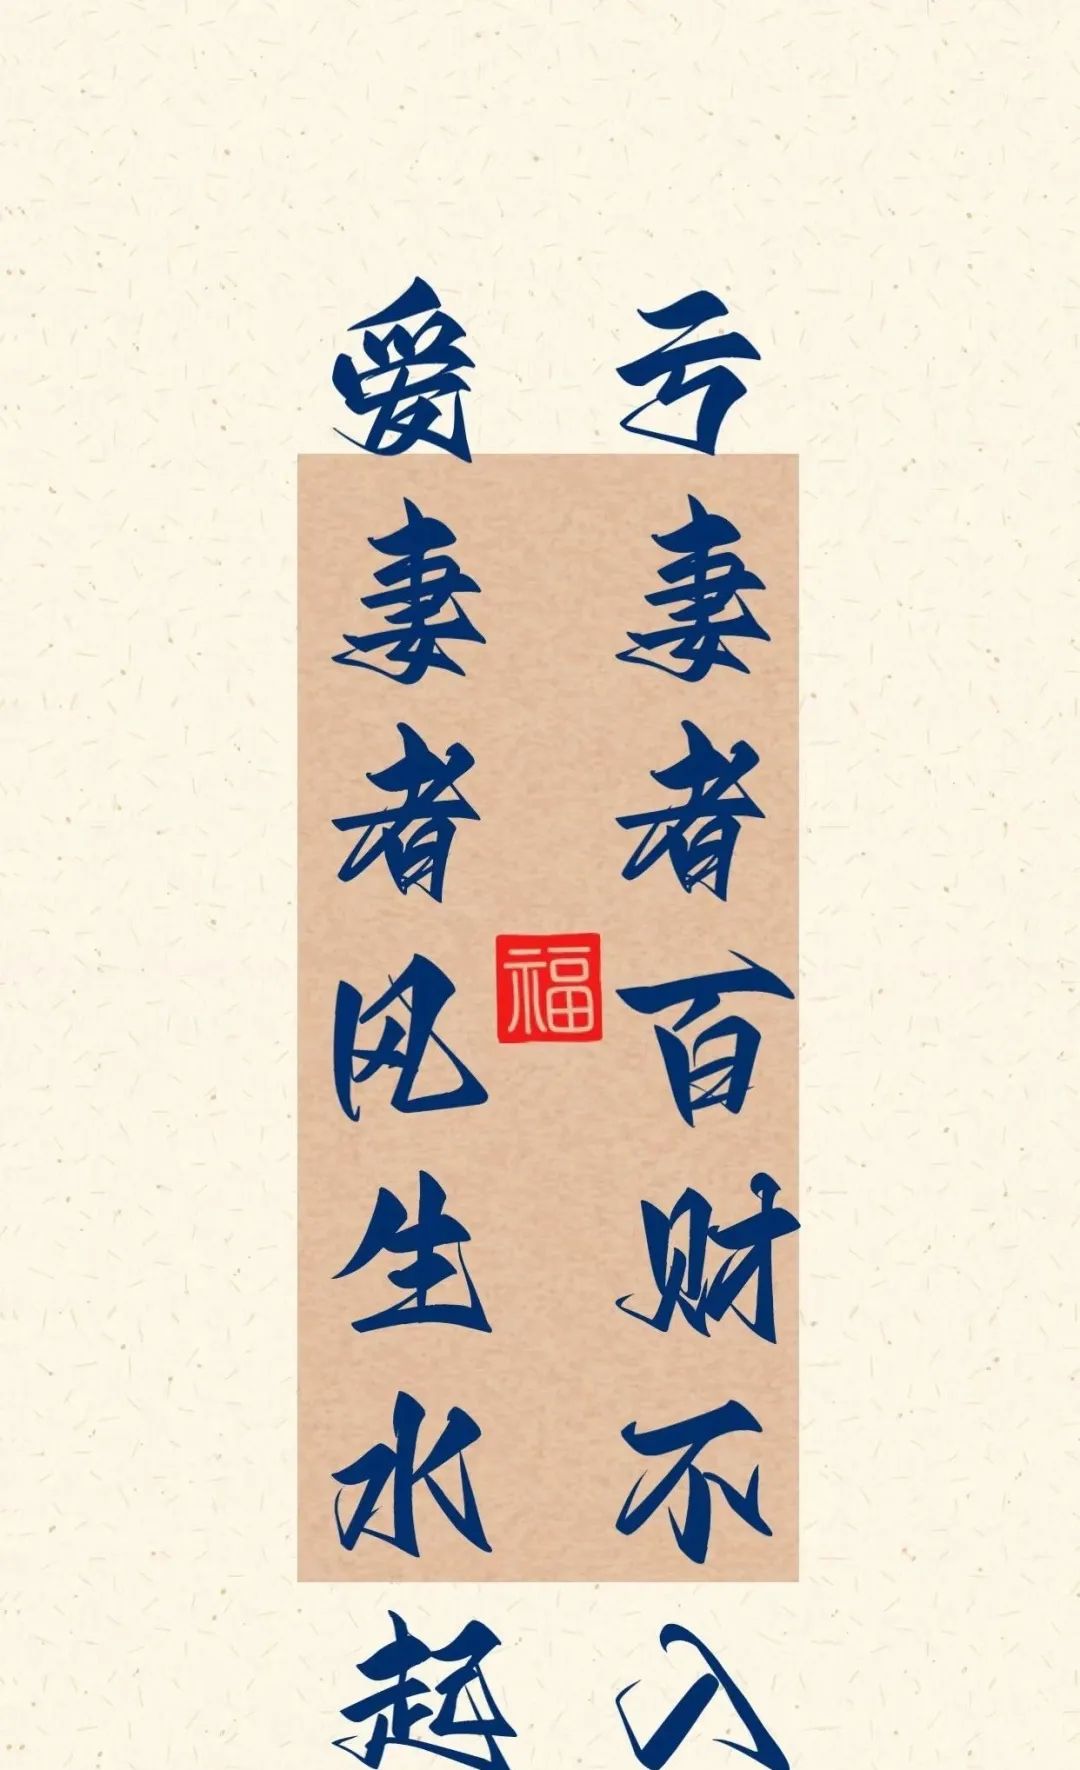 亏妻者百财不入
爱妻者风生水起
福